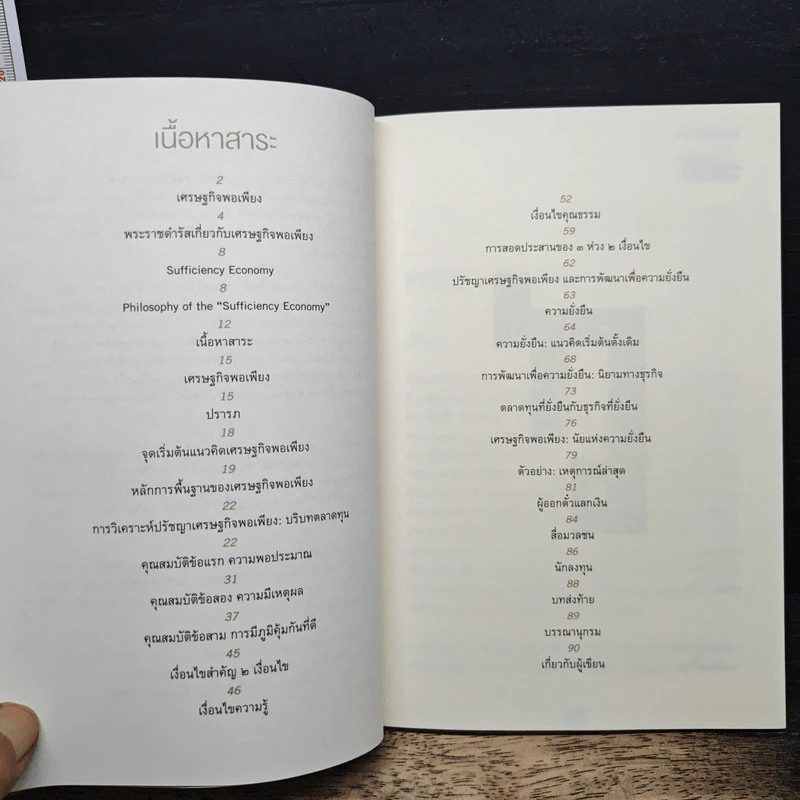 เนื้อหาสาระ
2
เศรษฐกิจพอเพียง
4
พระราชดำรัสเกี่ยวกับเศรษฐกิจพอเพียง
8
Sufficiency Economy
8
Philosophy of the “Sufficiency Economy”
12
เนื้อหาสาระ
15
เศรษฐกิจพอเพียง
15
ปรารภ
18
จุดเริ่มต้นแนวคิดเศรษฐกิจพอเพียง
19
หลักการพื้นฐานของเศรษฐกิจพอเพียง
22
การวิเคราะห์ปรัชญาเศรษฐกิจพอเพียง: บริบทตลาดทุน
22
คุณสมบัติข้อแรก ความพอประมาณ
31
คุณสมบัติข้อสอง ความมีเหตุผล
37
คุณสมบัติข้อสาม การมีภูมิคุ้มกันที่ดี
45
เงื่อนไขสำคัญ ๒ เงื่อนไข
46
เงื่อนไขความรู้
52
เงื่อนไขคุณธรรม
59
การสอดประสานของ ๓ ห่วง ๒ เงื่อนไข
62
ปรัชญาเศรษฐกิจพอเพียง และการพัฒนาเพื่อความยั่งยืน
63
ความยั่งยืน
64
ความยั่งยืน: แนวคิดเริ่มต้นดั้งเดิม
68
การพัฒนาเพื่อความยั่งยืน: นิยามทางธุรกิจ
73
ตลาดทุนที่ยั่งยืนกับธุรกิจที่ยั่งยืน
76
เศรษฐกิจพอเพียง: นัยแห่งความยั่งยืน
79
ตัวอย่าง: เหตุการณ์ล่าสุด
81
ผู้ออกตั๋วแลกเงิน
84
สื่อมวลชน
86
นักลงทุน
88
บทส่งท้าย
89
บรรณานุกรม
90
เกี่ยวกับผู้เขียน